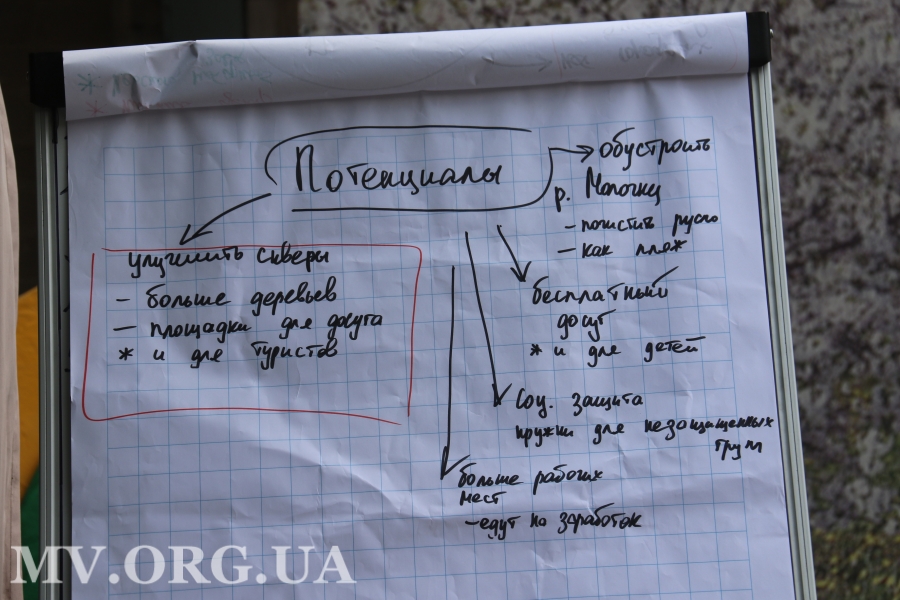 Потенциалы
→ обустроить
р. Молочну
– почистить русло
– как пляж
улучшить скверы
– больше деревьев
– площадки для досуга
* и для туристов
бесплатный
досуг
* и для детей
Соц. защита
кружки для незащищенных
групп
больше рабочих
мест
– едут на заработок
MV.ORG.UA